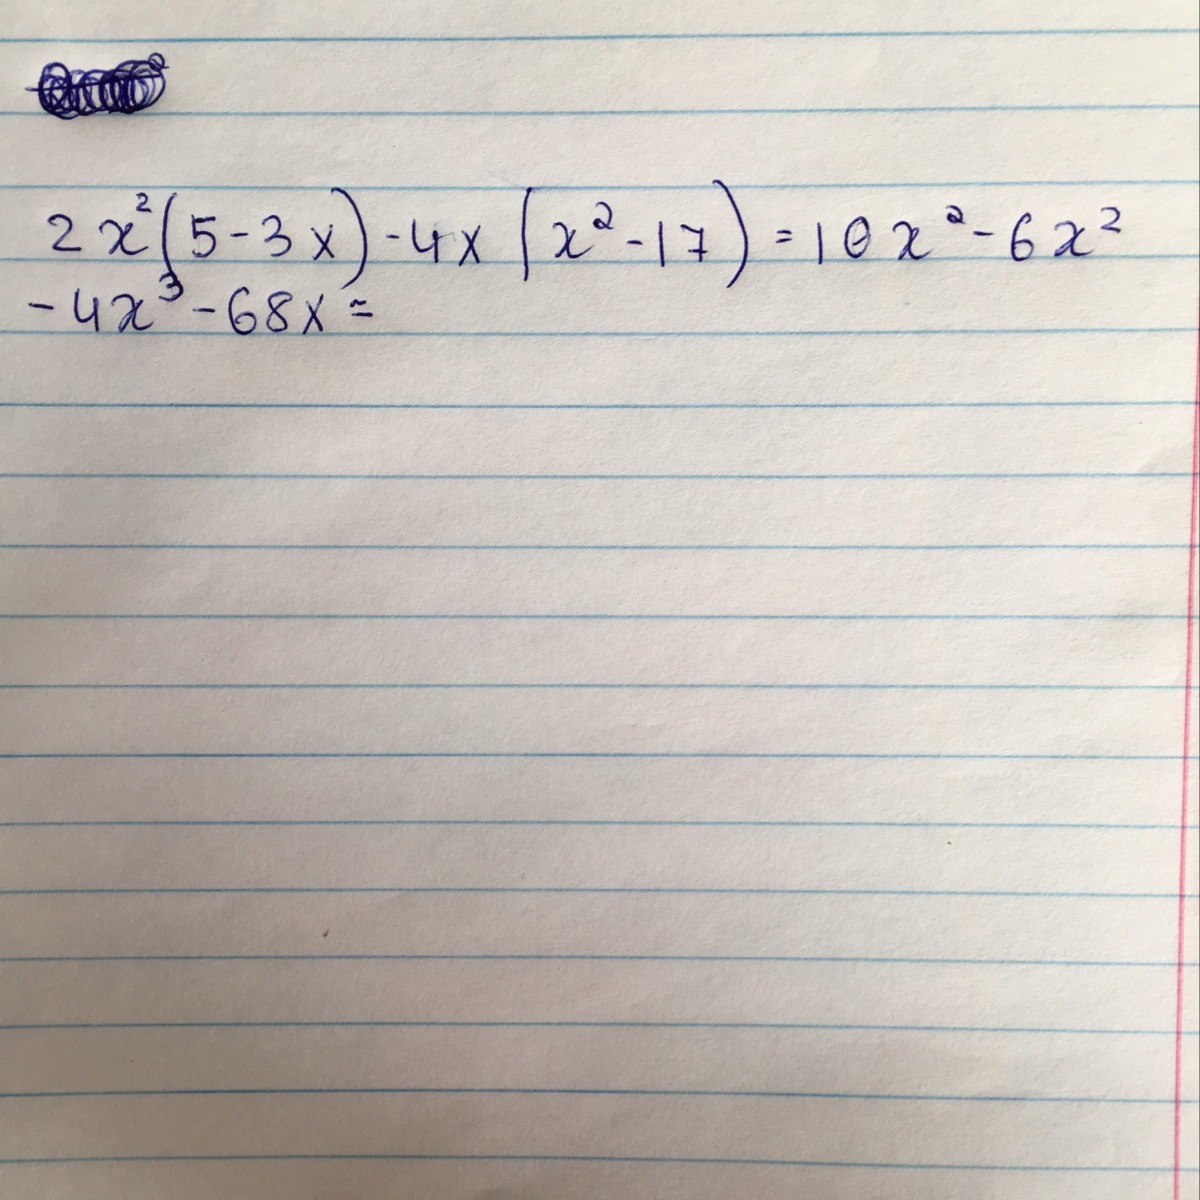 2x²(5-3x)-4x(x²-17)=10x²-6x²
-4x³-68x=